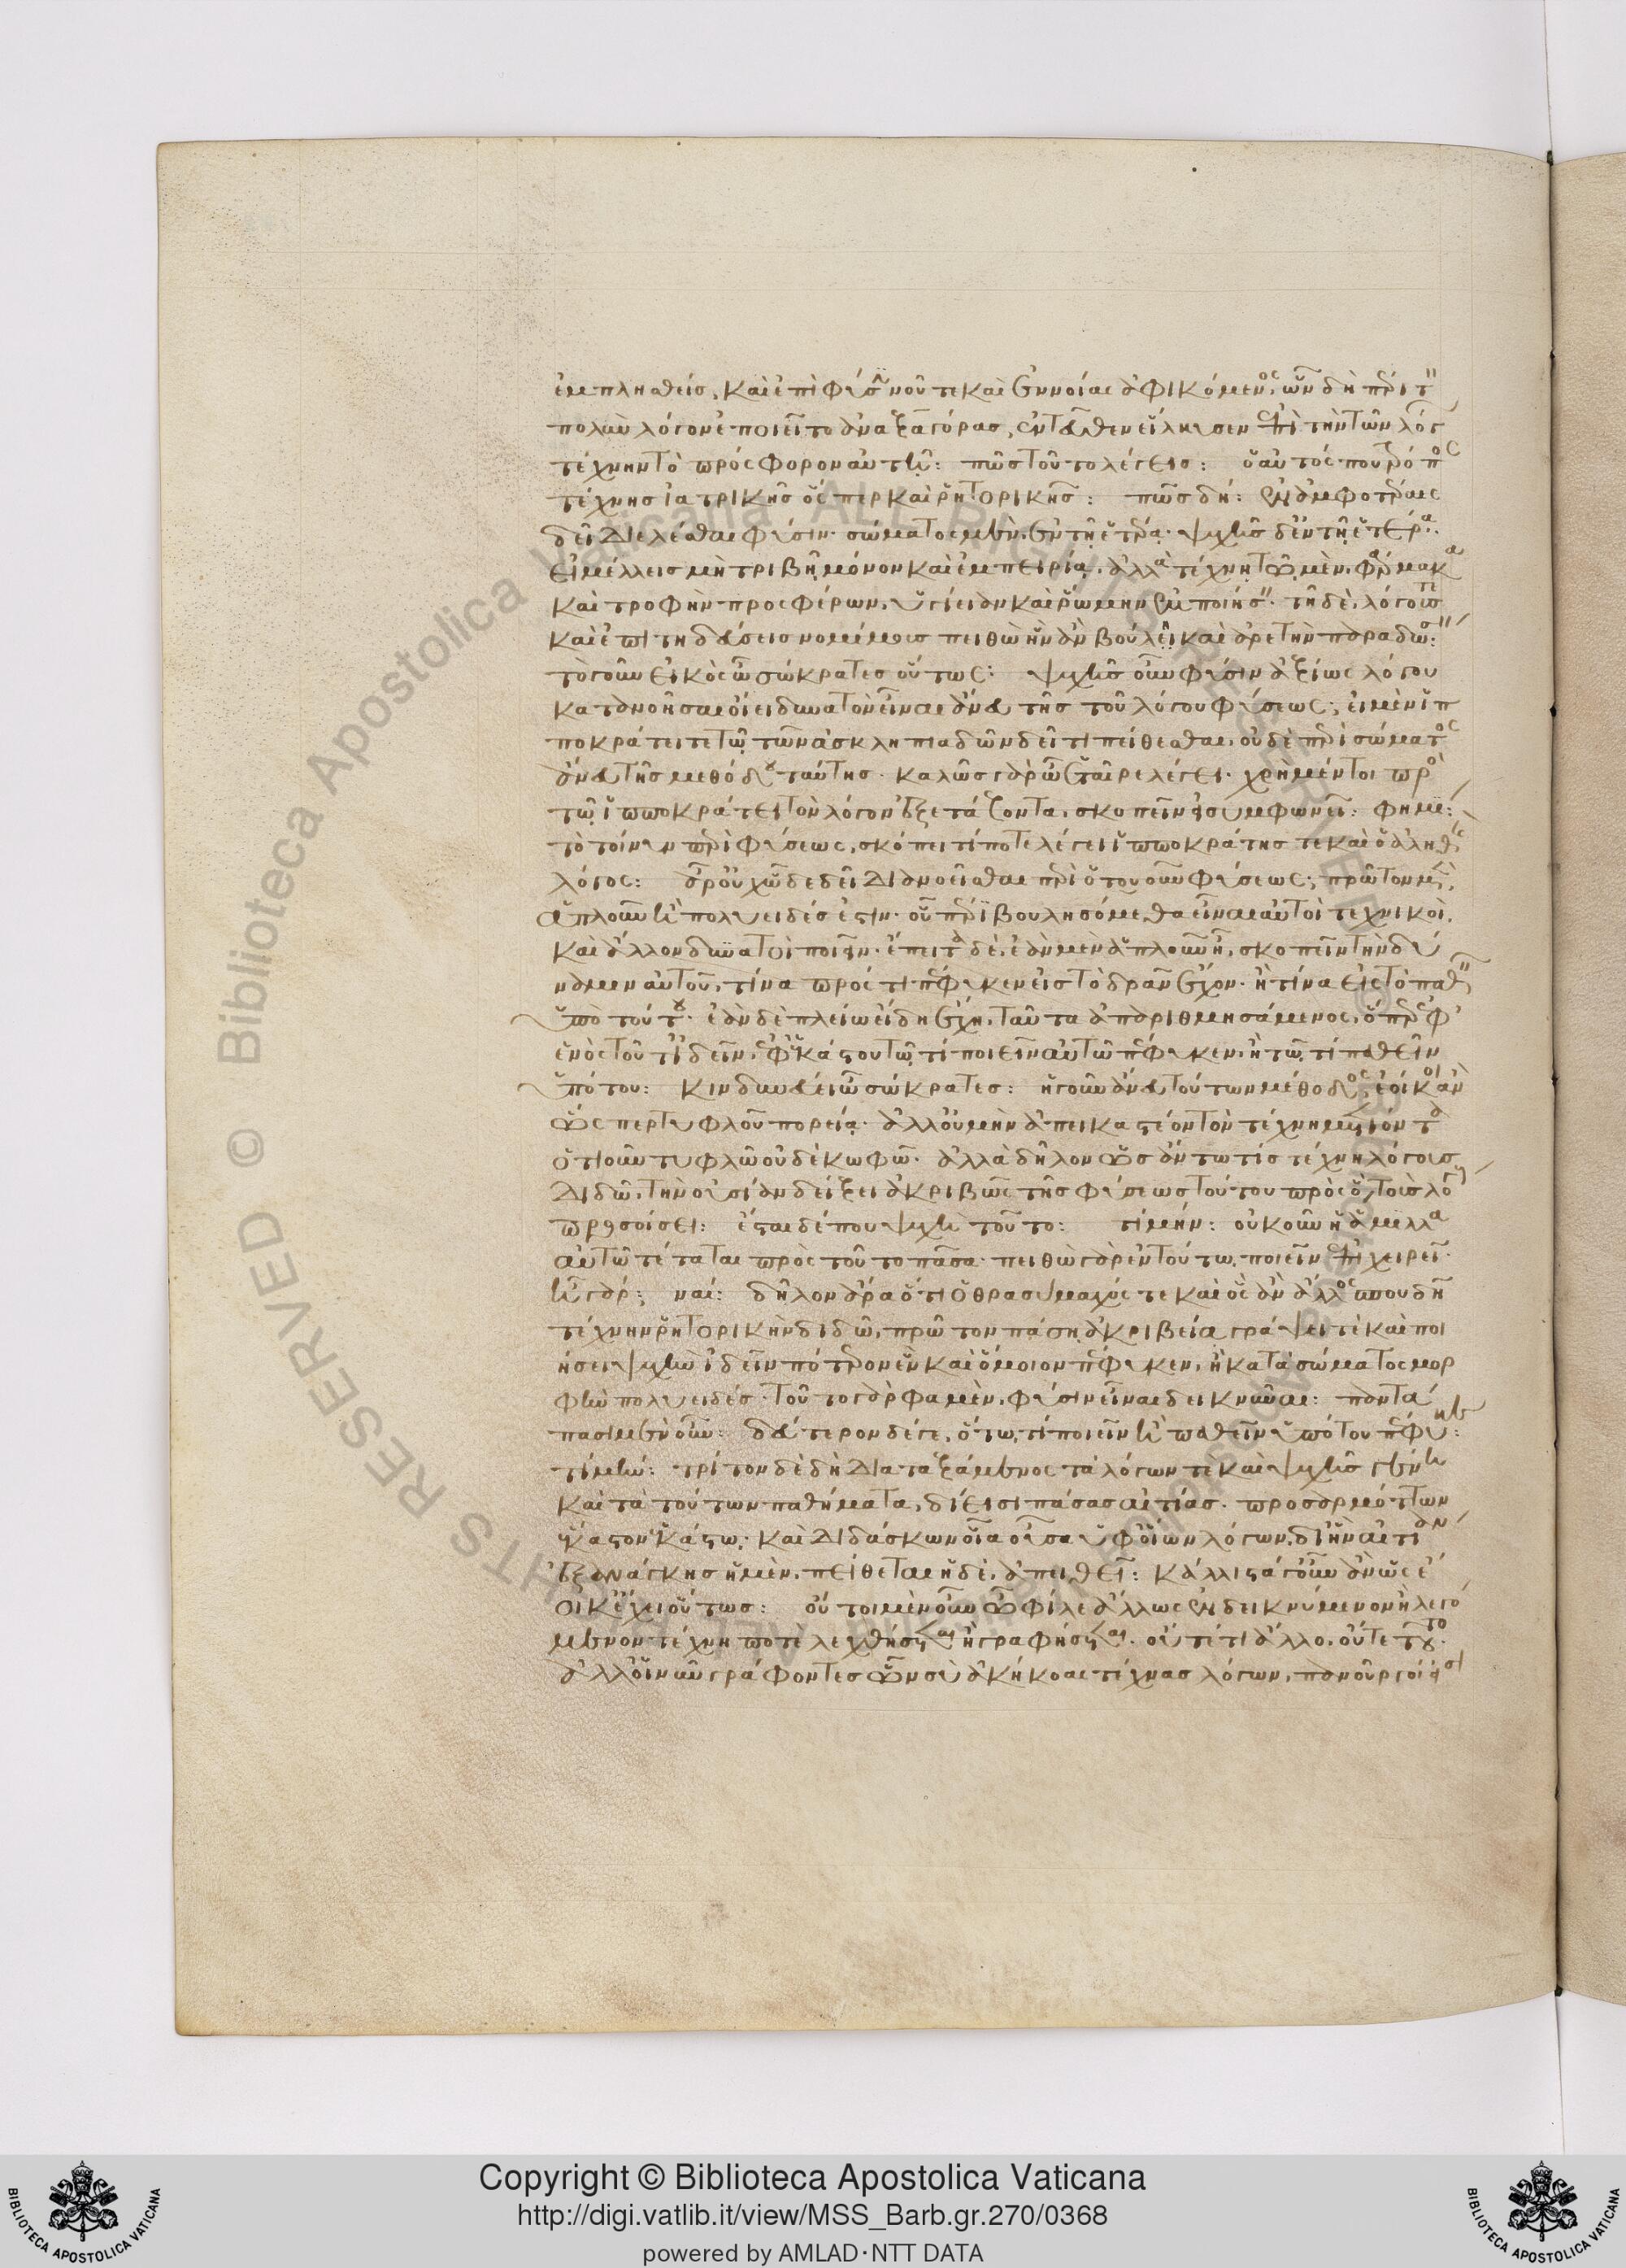 ἐμπλησθείς, καὶ ἐπὶ φύσιν νοῦ τε καὶ ἐννοίας ἀφικόμενος, ὧν δὴ πέρι τὸν
πολὺν λόγον ἐποιεῖτο ἀναξαγόρας, ἐντεῦθεν εἵλκυσεν ἐπὶ τὴν τῶν λόγων
τέχνην τὸ πρόσφορον αὐτῇ: πῶς τοῦτο λέγεις: ὁ αὐτός που τρόπος
τέχνης ἰατρικῆς ὅσπερ καὶ ῥητορικῆς: πῶς δή: ἐν ἀμφοτέραις
δεῖ διελέσθαι φύσιν· σώματος μὲν, ἐν τῇ ἑτέρᾳ· ψυχῆς δ' ἐν τῇ ἑτέρᾳ.
εἰ μέλλεις μὴ τριβῇ μόνον καὶ ἐμπειρίᾳ, ἀλλὰ τέχνῃ τῷ μὲν, φάρμακα
καὶ τροφὴν προσφέρων, ὑγίειαν καὶ ῥώμην ἐμποιήσειν· τῇ δὲ, λόγους τε
καὶ ἐπιτηδεύσεις νομίμους πειθὼ ἣν ἂν βούλῃ καὶ ἀρετὴν παραδώσειν:
τὸ γοῦν εἰκὸς ὦ σώκρατες οὕτως: ψυχῆς οὖν φύσιν ἀξίως λόγου
κατανοῆσαι οἴει δυνατὸν εἶναι ἄνευ τῆς τοῦ λόγου φύσεως; εἰ μὲν ἱπ
ποκράτει τε τῷ τῶν ἀσκληπιαδῶν δεῖ τι πείθεσθαι, οὐδὲ περὶ σώματος
ἄνευ τῆς μεθόδου ταύτης. καλῶς γὰρ ὦ ἑταῖρε λέγει. χρὴ μέντοι πρὸς
τῷ ἱπποκράτει τὸν λόγον ἐξετάζοντα, σκοπεῖν εἰ συμφωνεῖ: φημί:
τὸ τοίνυν περὶ φύσεως, σκόπει τί ποτε λέγει ἱπποκράτης τε καὶ ὁ ἀληθὴς
λόγος: ἆρ' οὐχ ὧδε δεῖ διανοεῖσθαι περὶ ὁτουοῦν φύσεως; πρῶτον μὲν,
ἁπλοῦν ἢ πολυειδές ἐστιν· οὗ πέρι βουλησόμεθα εἶναι αὐτοὶ τεχνικοὶ,
καὶ ἄλλον δυνατοὶ ποιεῖν· ἔπειτα δὲ, ἐὰν μὲν ἁπλοῦν ᾖ, σκοπεῖν τὴν δύ
ναμιν αὐτοῦ, τίνα πρός τι πέφυκεν εἰς τὸ δρᾶν ἔχον· ἢ τίνα εἰς τὸ παθεῖν
ὑπὸ τούτου· ἐὰν δὲ πλείω εἴδη ἔχῃ, ταῦτα ἀπαριθμησάμενος, ὅπερ ἐφ'
ἑνὸς τοῦτ' ἰδεῖν, ἐφ' ἑκάστου τῷ τί ποιεῖν αὐτῷ πέφυκεν, ἢ τῷ τί παθεῖν
ὑπό του: κινδυνεύει ὦ σώκρατες: ἡ γοῦν ἄνευ τούτων μέθοδος, ἐοίκοι ἂν
ὥσπερ τυφλοῦ πορείᾳ. ἀλλ' οὐ μὴν ἀπεικαστέον τὸν τέχνῃ μετιόντα
ὁτιοῦν τυφλῷ οὐδὲ κωφῷ. ἀλλὰ δῆλον ὡς ἄν τῳ τίς τέχνῃ λόγους
διδῷ, τὴν οὐσίαν δείξει ἀκριβῶς τῆς φύσεως τούτου πρὸς ὃ τοὺς λόγους
προσοίσει: ἔσται δέ που ψυχὴ τοῦτο: τί μήν: οὐκοῦν ἡ ἅμιλλα
αὐτῷ τέταται πρὸς τοῦτο πᾶσα. πειθὼ γὰρ ἐν τούτῳ ποιεῖν ἐπιχειρεῖ.
ἦ γάρ; ναί: δῆλον ἄρα ὅτι ὁ θρασύμαχός τε καὶ ὃς ἂν ἄλλος σπουδῇ
τέχνην ῥητορικὴν διδῷ, πρῶτον πάσῃ ἀκριβείᾳ γράψει τὲ καὶ ποι
ήσει ψυχὴν ἰδεῖν πότερον ἓν καὶ ὅμοιον πέφυκεν, ἢ κατὰ σώματος μορ
φὴν πολυειδές. τοῦτο γὰρ φαμὲν, φύσιν εἶναι δεικνύναι: παντά
πασι μὲν οὖν: δεύτερον δέ γε, ὅτῳ τί ποιεῖν ἢ παθεῖν ὑπό του πέφυκεν:
τί μήν: τρίτον δὲ δὴ διαταξάμενος τὰ λόγων τε καὶ ψυχῆς γένη
καὶ τὰ τούτων παθήματα, δίεισι πάσας αἰτίας. προσαρμόττων
ἕκαστον ἑκάστῳ. καὶ διδάσκων οἵα οὖσα ὑφ' οἵων λόγων, δι' ἣν αἰτίαν
ἐξ ἀνάγκης ἡ μὲν, πείθεται ἡ δὲ, ἀπειθεῖ: κάλλιστα γοῦν ἂν ὡς ἔ
οικ' ἔχοι οὕτως: οὔτοι μὲν οὖν ὦ φίλε ἄλλως ἐνδεικνύμενον ἢ λεγό
μενον τέχνῃ ποτὲ λεχθήσεται ἢ γραφήσεται. οὔτέ τι ἄλλο, οὔτε τοῦτο.
ἀλλ' οἱ νῦν γράφοντες ὧν σὺ ἀκήκοας τέχνας λόγων, πανοῦργοί εἰσι
Copyright © Biblioteca Apostolica Vaticana
http://digi.vatlib.it/view/MSS_Barb.gr.270/0368
powered by AMLAD·NTT DATA